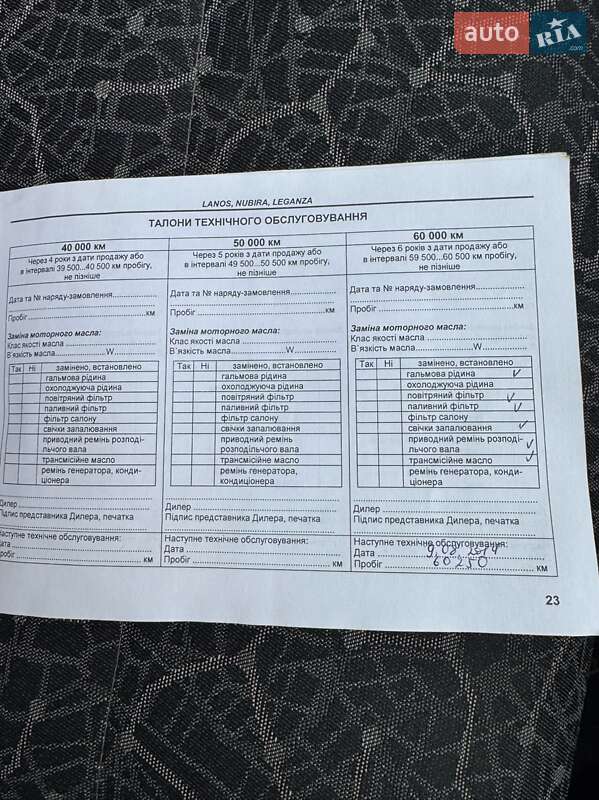 auto RIA.com
LANOS, NUBIRA, LEGANZA
ТАЛОНИ ТЕХНІЧНОГО ОБСЛУГОВУВАННЯ
40 000 км
Через 4 роки з дати продажу або
в інтервалі 39 500...40 500 км пробігу,
не пізніше
Дата та № наряду-замовлення
Пробіг км
Заміна моторного масла:
Клас якості масла
В`язкість масла W
Так Ні замінено, встановлено
гальмова рідина
охолоджуюча рідина
повітряний фільтр
паливний фільтр
фільтр салону
свічки запалювання
приводний ремінь розподі-
льчого вала
трансмісійне масло
ремінь генератора, конди-
ціонера
Дилер
Підпис представника Дилера, печатка
Наступне технічне обслуговування:
Дата
Пробіг км
50 000 км
Через 5 років з дати продажу або
в інтервалі 49 500...50 500 км пробігу,
не пізніше
Дата та № наряду-замовлення
Пробіг км
Заміна моторного масла:
Клас якості масла
В`язкість масла W
Так Ні замінено, встановлено
гальмова рідина
охолоджуюча рідина
повітряний фільтр
паливний фільтр
фільтр салону
свічки запалювання
приводний ремінь
розподільчого вала
трансмісійне масло
ремінь генератора,
кондиціонера
Дилер
Підпис представника Дилера, печатка
Наступне технічне обслуговування:
Дата
Пробіг км
60 000 км
Через 6 років з дати продажу або
в інтервалі 59 500...60 500 км пробігу,
не пізніше
Дата та № наряду-замовлення
Пробіг км
Заміна моторного масла:
Клас якості масла
В`язкість масла W
Так Ні замінено, встановлено
гальмова рідина ✓
охолоджуюча рідина
повітряний фільтр ✓
паливний фільтр ✓
фільтр салону
свічки запалювання ✓
приводний ремінь розподі-
льчого вала ✓
трансмісійне масло ✓
ремінь генератора, конди-
ціонера
Дилер
Підпис представника Дилера, печатка
Наступне технічне обслуговування:
Дата 9.08.2014
Пробіг 60250 км
23